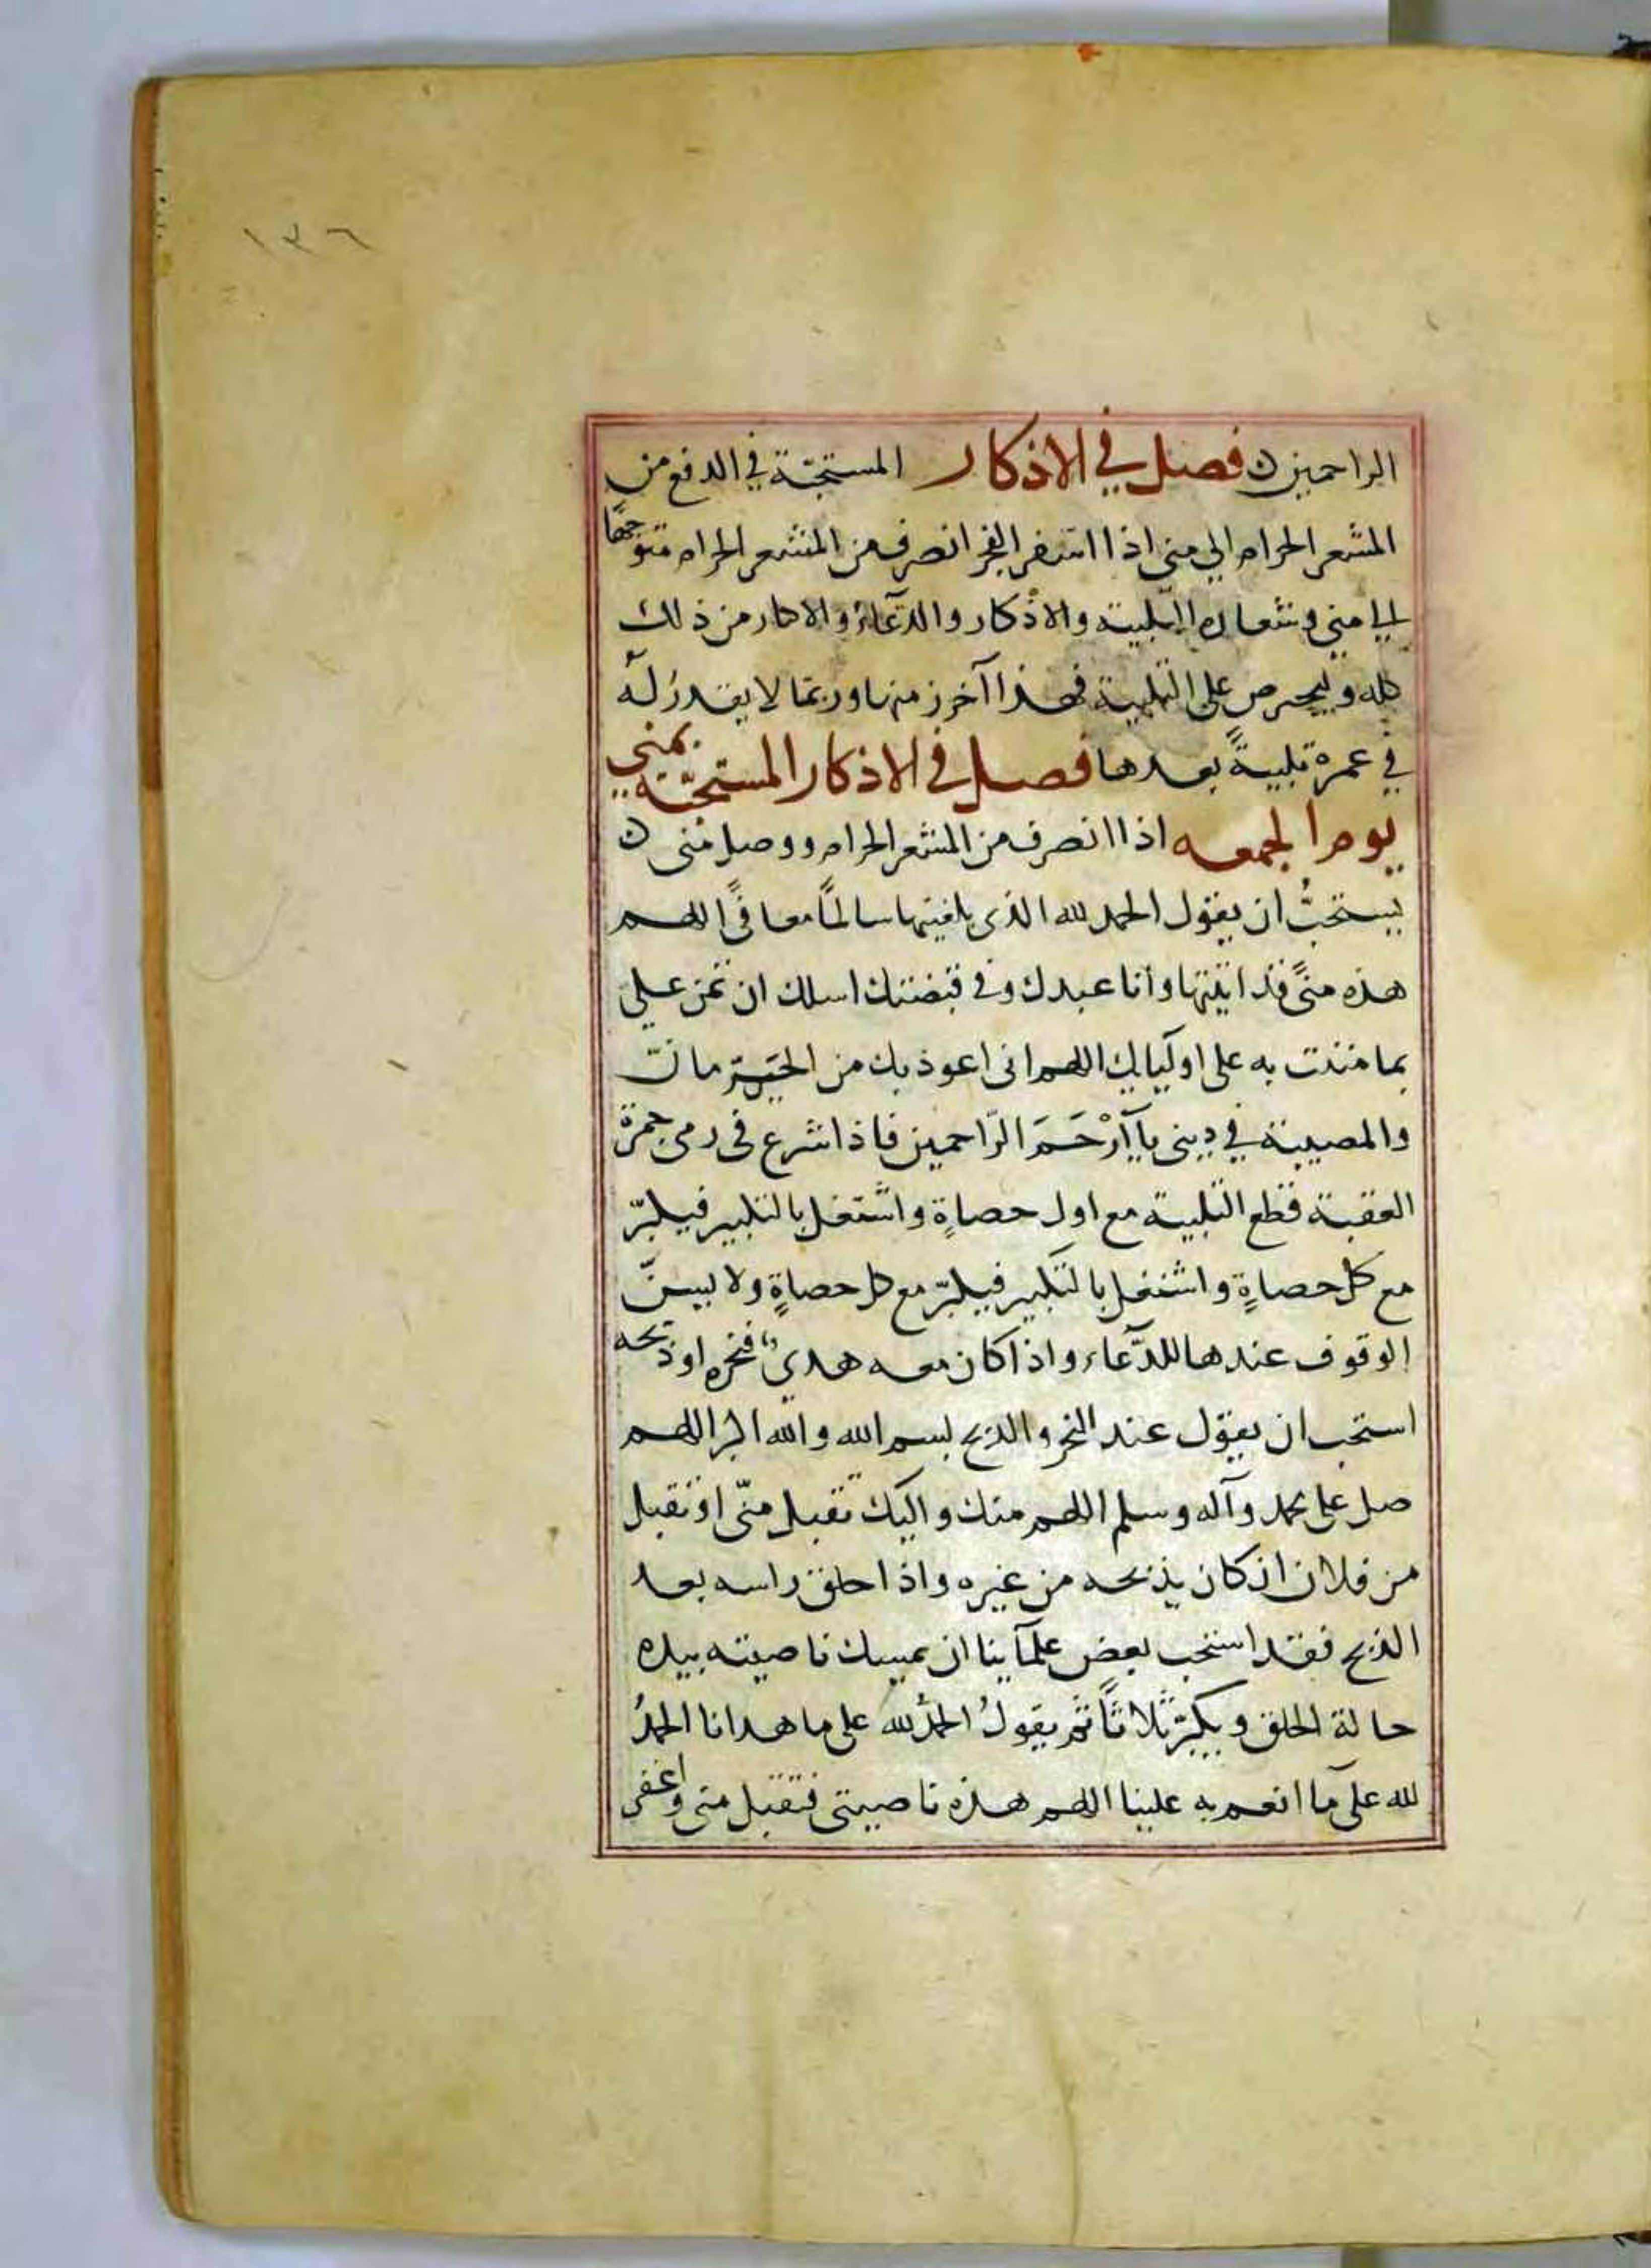 ١٣٦
الراحمين ن فصل في الاذكار المستحبّة في الدفع من
المشعر الحرام الي منى اذا اسفر الفجر انصرف من المشعر الحرام متوجهًا
الي منى وشعاره التلبية والاذكار والدّعآء والاكثار من ذلك
كله وليحرص على التلبية فهذا آخر زمنها وربمّا لا يقدر له
في عمره تلبيةً بعدها فصل في الاذكار المستحبّة بمنى
يوم الجمعه اذا انصرف من المشعر الحرام ووصل منى ن
يستحبُّ ان يقول الحمد لله الذى بلغنيها سالمًا معافًى اللهم
هذه منًى قد اتيتها وانا عبدك وفى قبضتك اسلك ان تمن علي
بما مننت به على اوليايك اللهم انى اعوذ بك من الحرمان
والمصيبة في دينى يآ أرْحَمَ الرّاحمين فاذا شرع فى رمى جمرة
العقبة قطع التلبية مع اول حصاةٍ واشتغل بالتكبير فيكبّر
مع كل حصاةٍ واشتغل بالتكبير فيكبّر مع كل حصاةٍ ولا يسنّ
الوقوف عندها للدّعاء واذا كان معه هدي فنحره او ذبحه
استحب ان يقول عند النحر والذبح بسم الله والله اكبر اللهم
صل على محمد وآله وسلم اللهم منك واليك تقبل منّى او تقبل
من فلان ان كان يذبحه من غيره واذا حلق راسه بعد
الذبح فقد استحب بعض علمآينا ان يمسك ناصيته بيده
حالة الحلق ويكبّر ثلاثًا ثم يقولُ الحمدُ لله على ما هدانا الحمدُ
لله على مآ انعم به علينا اللهم هذه ناصيتى فتقبل منى واغفر